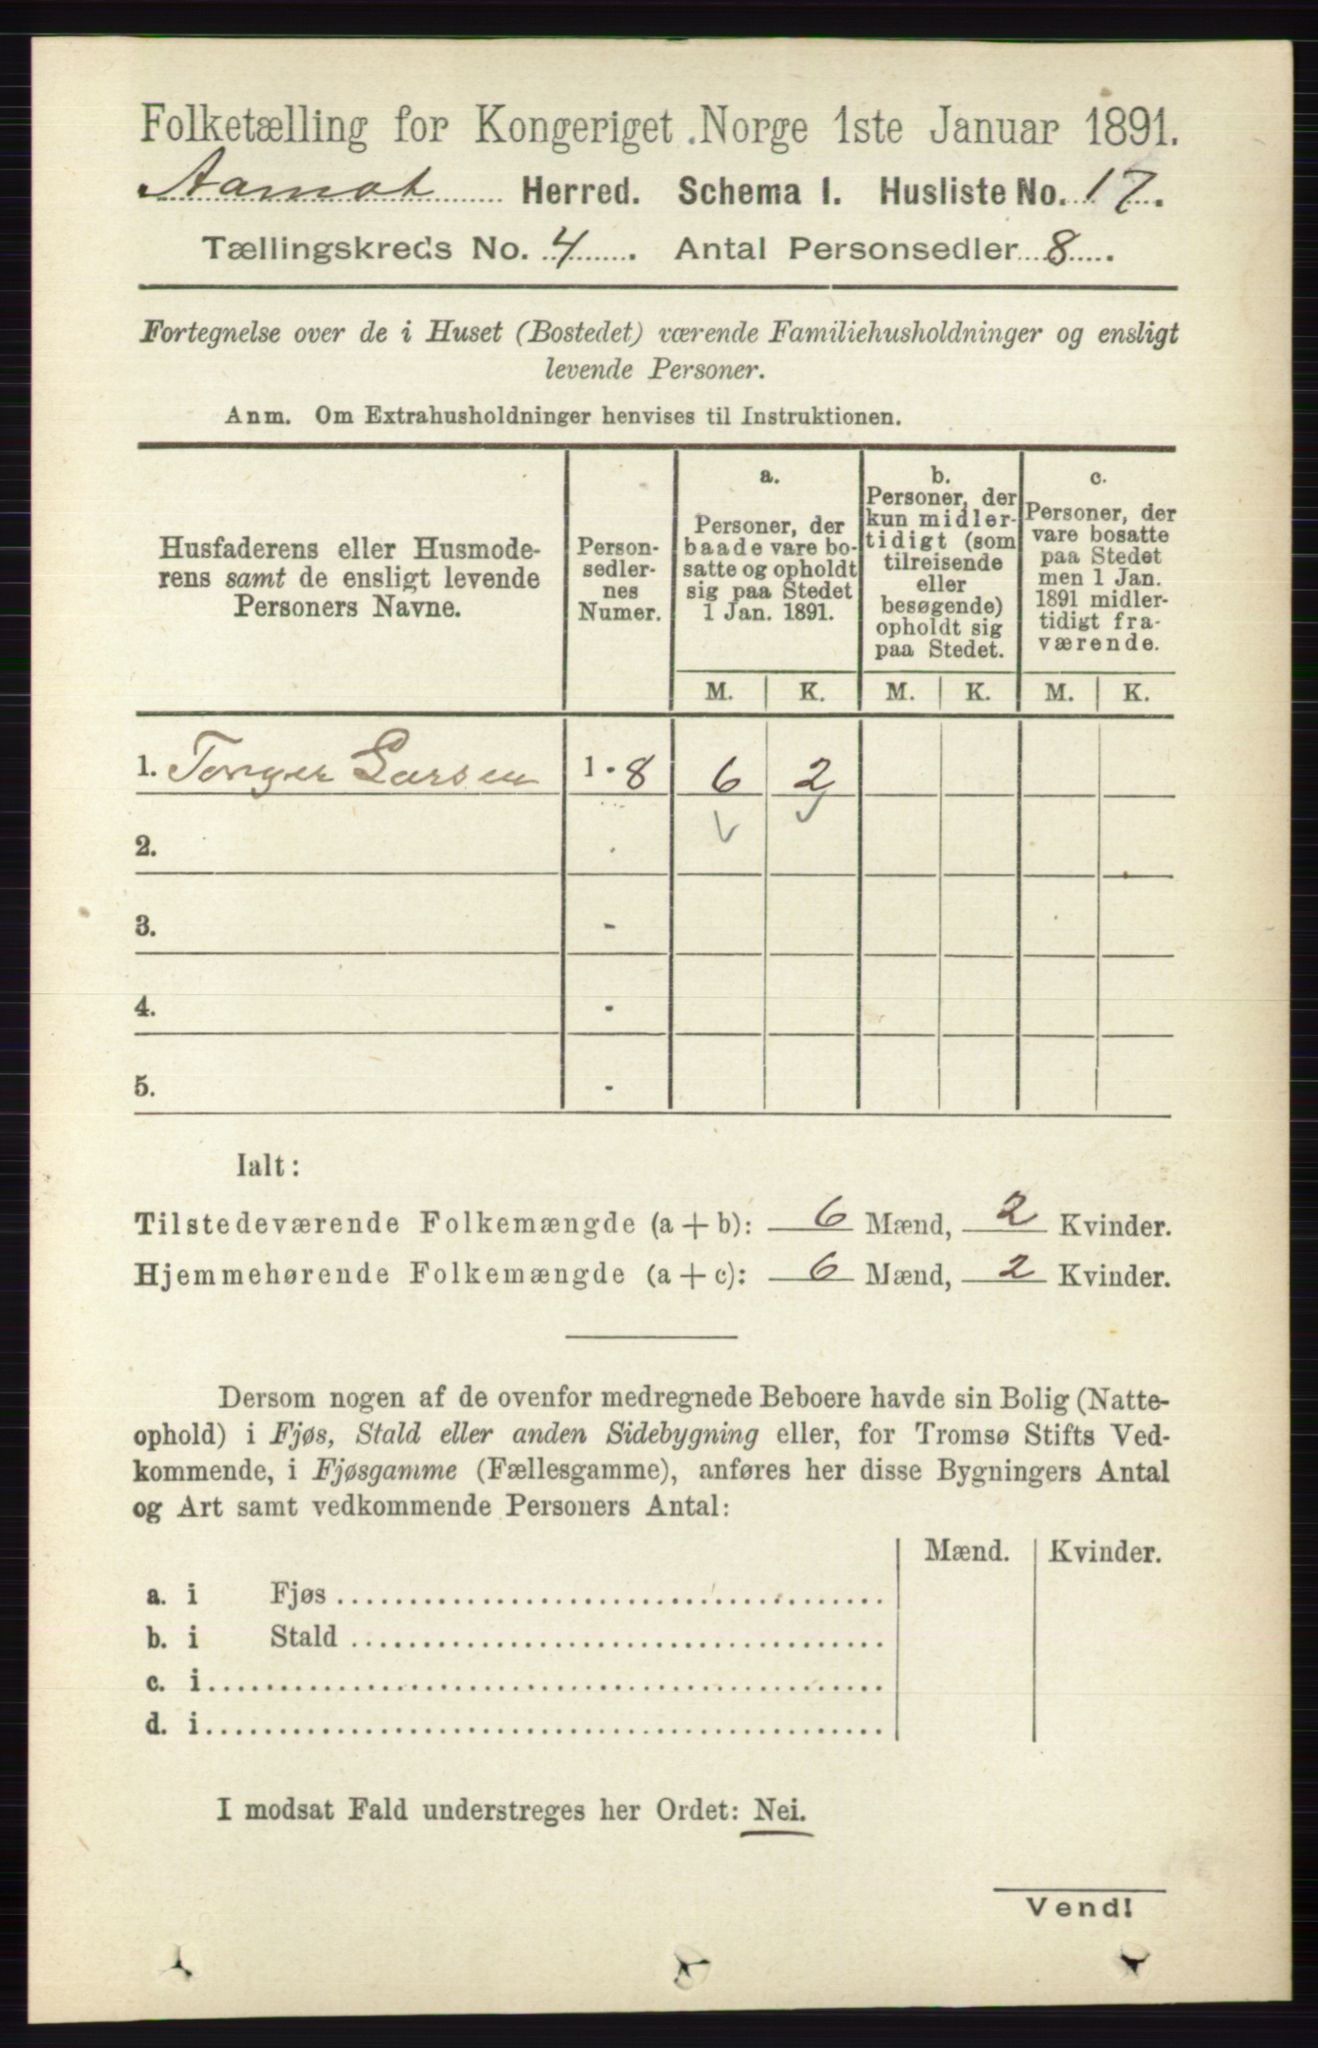 Folketælling for Kongeriget Norge 1ste Januar 1891.
Aamot Herred. Schema I. Husliste No. 17.
Tællingskreds No. 4. Antal Personsedler 8.
Fortegnelse over de i Huset (Bostedet) værende Familiehusholdninger og ensligt
levende Personer.
Anm. Om Extrahusholdninger henvises til Instruktionen.
Husfaderens eller Husmode-
rens samt de ensligt levende
Personers Navne.
Person-
sedler-
nes
Numer.
a.
Personer, der
baade vare bo-
satte og opholdt
sig paa Stedet
1 Jan. 1891.
b.
Personer, der
kun midler-
tidigt (som
tilreisende
eller
besøgende)
opholdt sig
paa Stedet.
c.
Personer, der
vare bosatte
paa Stedet
men 1 Jan.
1891 midler-
tidigt fra-
værende.
M. K. M. K. M. K.
1. Torger Larsen 1 - 8 6 2
2.
3. -
4. -
5. -
Ialt:
Tilstedeværende Folkemængde (a + b): 6 Mænd, 2 Kvinder.
Hjemmehørende Folkemængde (a + c): 6 Mænd, 2 Kvinder.
Dersom nogen af de ovenfor medregnede Beboere havde sin Bolig (Natte-
ophold) i Fjøs, Stald eller anden Sidebygning eller, for Tromsø Stifts Ved-
kommende, i Fjøsgamme (Fællesgamme), anføres her disse Bygningers Antal
og Art samt vedkommende Personers Antal:
Mænd. Kvinder.
a. i Fjøs
b. i Stald
c. i
d. i
I modsat Fald understreges her Ordet: Nei.
Vend!